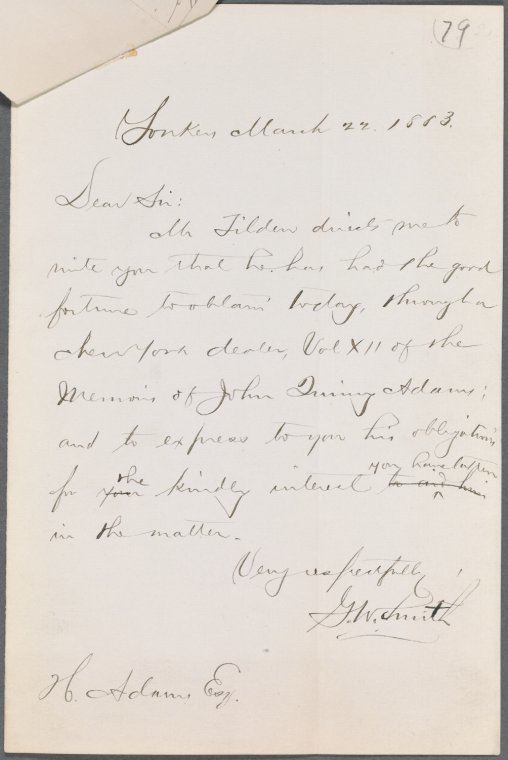 79
Yonkers March 22. 1883.
Dear Sir:
Mr Tilden directs me to
write you that he has had the good
fortune to obtain today, through a
New York dealer, Vol XII of the
Memoirs of John Quincy Adams;
and to express to you his obligations
for your the kindly interest to aid him you have taken
in the matter.
Very respectfully,
G. W. Smith
H. Adams Esq.